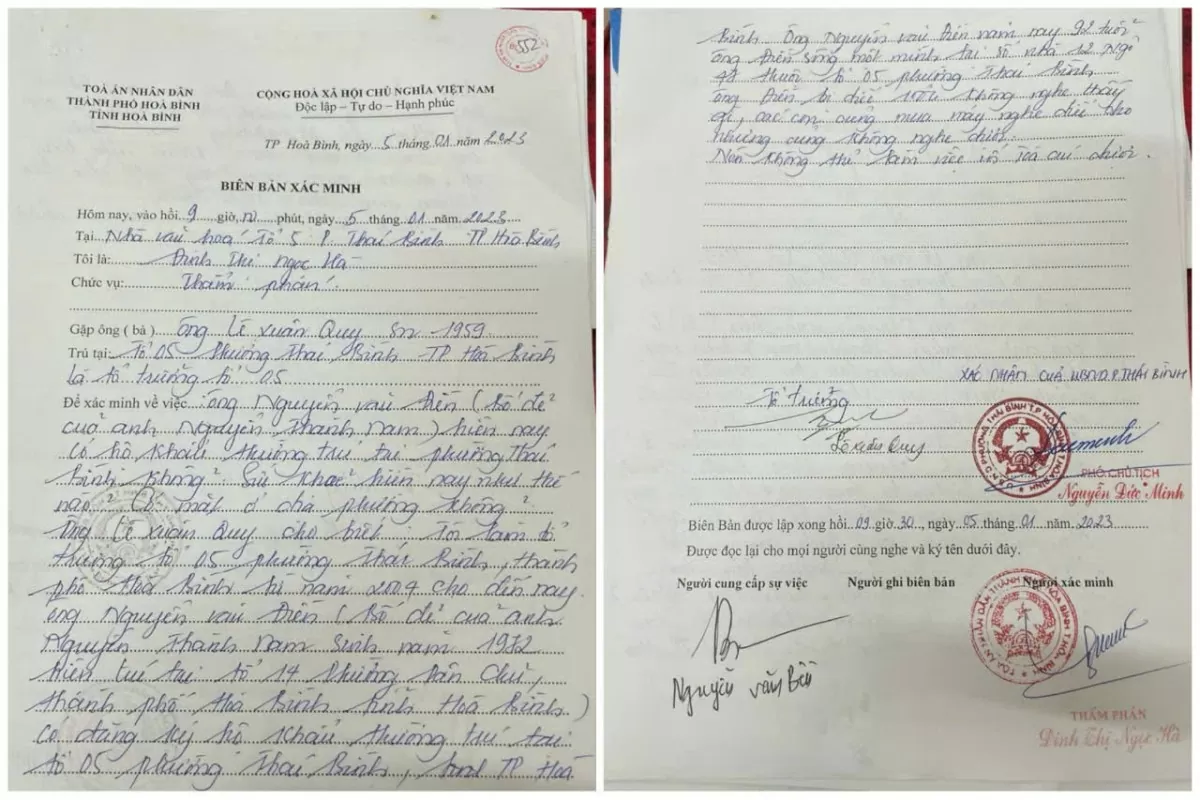 552
TOÀ ÁN NHÂN DÂN
THÀNH PHỐ HOÀ BÌNH
TỈNH HOÀ BÌNH
CỘNG HOÀ XÃ HỘI CHỦ NGHĨA VIỆT NAM
Độc lập – Tự do – Hạnh phúc
TP Hoà Bình, ngày 5 tháng 01 năm 2023
BIÊN BẢN XÁC MINH
Hôm nay, vào hồi 9 giờ, 00 phút, ngày 5 tháng 01 năm 2023
Tại Nhà văn hoá Tổ 5 P. Thái Bình TP Hoà Bình
Tôi là: Đinh Thị Ngọc Hà
Chức vụ: Thẩm phán.
Gặp ông ( bà ) ông Lê Xuân Quy Sn 1959
Trú tại: Tổ 05 Phường Thái Bình TP Hoà Bình
là tổ trưởng tổ 05
Để xác minh về việc ông Nguyễn văn Điền ( bố đẻ
của anh Nguyễn Thành Nam ) hiện nay
có hộ khẩu thường trú tại phường Thái
Bình không? Sức khoẻ hiện nay như thế
nào? Có mặt ở địa phương không?
Ông Lê Xuân Quy cho biết: Tôi làm tổ
trưởng tổ 05 phường Thái Bình, thành
phố Hoà Bình từ năm 2004 cho đến nay
ông Nguyễn văn Điền ( bố đẻ của anh
Nguyễn Thành Nam sinh năm 1972
hiện trú tại tổ 14 Phường Dân Chủ,
thành phố Hoà Bình tỉnh Hoà Bình )
có đăng ký hộ khẩu thường trú tại
tổ 05 phường Thái Bình, TP Hoà
Bình Ông Nguyễn văn Điền năm nay 92 tuổi
ông Điền sống một mình tại số nhà 12 Ngõ
thuộc tổ 05 phường Thái Bình
ông Điền bị điếc không nghe thấy
gì, các con cũng mua máy nghe điếc cho
nhưng cũng không nghe được.
Nên không thể làm việc với Toà án được.
XÁC NHẬN CỦA UBND.P.THÁI BÌNH
Tổ trưởng
Lê Xuân Quy
PHÓ CHỦ TỊCH
Nguyễn Đức Minh
Biên Bản được lập xong hồi 09 giờ 30, ngày 05 tháng 01 năm 2023
Được đọc lại cho mọi người cùng nghe và ký tên dưới đây.
Người cung cấp sự việc Người ghi biên bản Người xác minh
Nguyễn văn
THẨM PHÁN
Đinh Thị Ngọc Hà